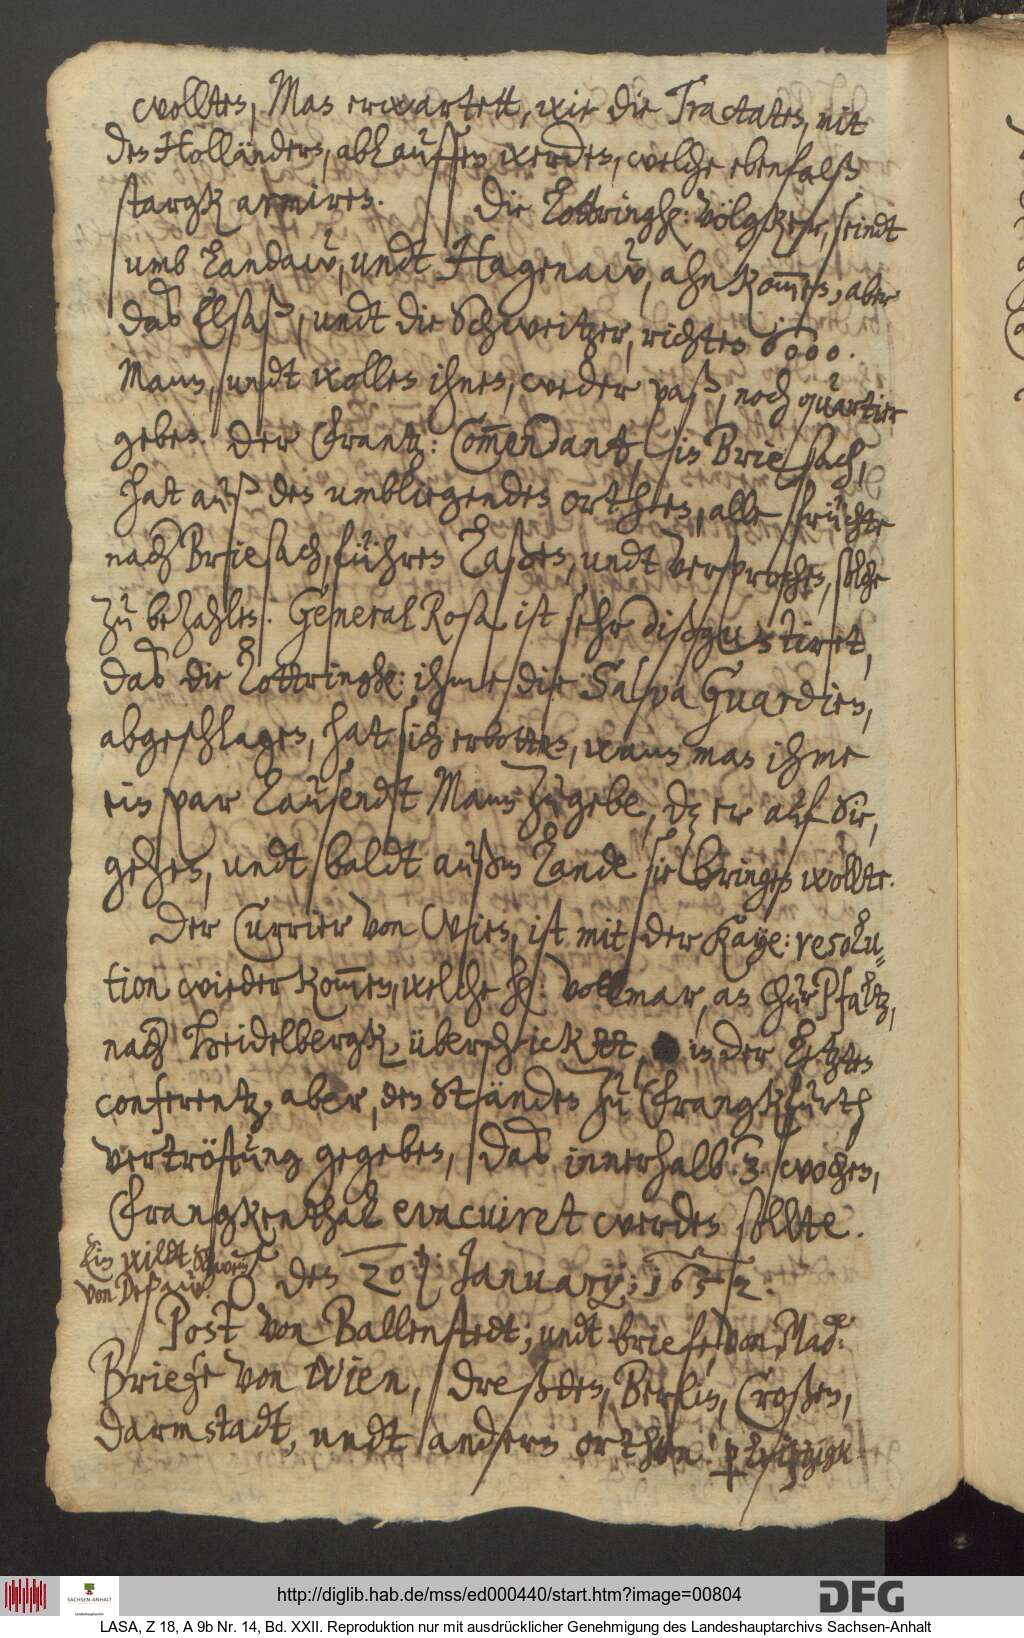 wolten, Man erwartett, wie die Tractaten, mit
den Holländern, ablauffen werden, welche ebenfalß
stargk armiren. Die Lottringhische völgker, seindt
umb Landaw, undt Hagenaw, ahnkommen, aber
das Elsaß, undt die Schweitzer, richten 6000.
Mann, undt wollen ihnen, weder paß, noch quartier
geben. Der Frantz: Commendant, in Briesach,
hat auß den umbliegenden orthen, alle früchte
nach Briesach, führen Laßen, undt versprochen, solche
zu bezahlen. General Rosa ist sehr disgustiret,
das die Lottringhische ihme die Salva Guardien,
abgeschlagen, hat sich erbotten, wann man ihme
ein par Tausendt Mann zugebe, dz er auf Sie,
gehen, undt baldt außm Lande sie bringen wollte.
Der Currier von Wien, ist mit der Kaye: resolu-
tion wieder kommen, welche h: Vollmar, an ChurPfaltz,
nach Heidelbergk, überschicktt, in der Letzten
conferentz, aber, den Ständen zu Frangkfurth
vertröstung gegeben, das innerhalb 3. wochen,
Frangkenthal evacuiret werden sollte.
Ein wildt Schwein
von Deßaw. den 20. January; 1652.
Post von Ballenstedt; undt briefe, von Mad:
Briefe von Wien, Dreßden, Berlin, Croßen,
Darmstadt, undt andern orthen! p Leiptzigk.
http://diglib.hab.de/mss/ed000440/start.htm?image=00804
DFG
SACHSEN-ANHALT
LASA, Z 18, A 9b Nr. 14, Bd. XXII. Reproduktion nur mit ausdrücklicher Genehmigung des Landeshauptarchivs Sachsen-Anhalt